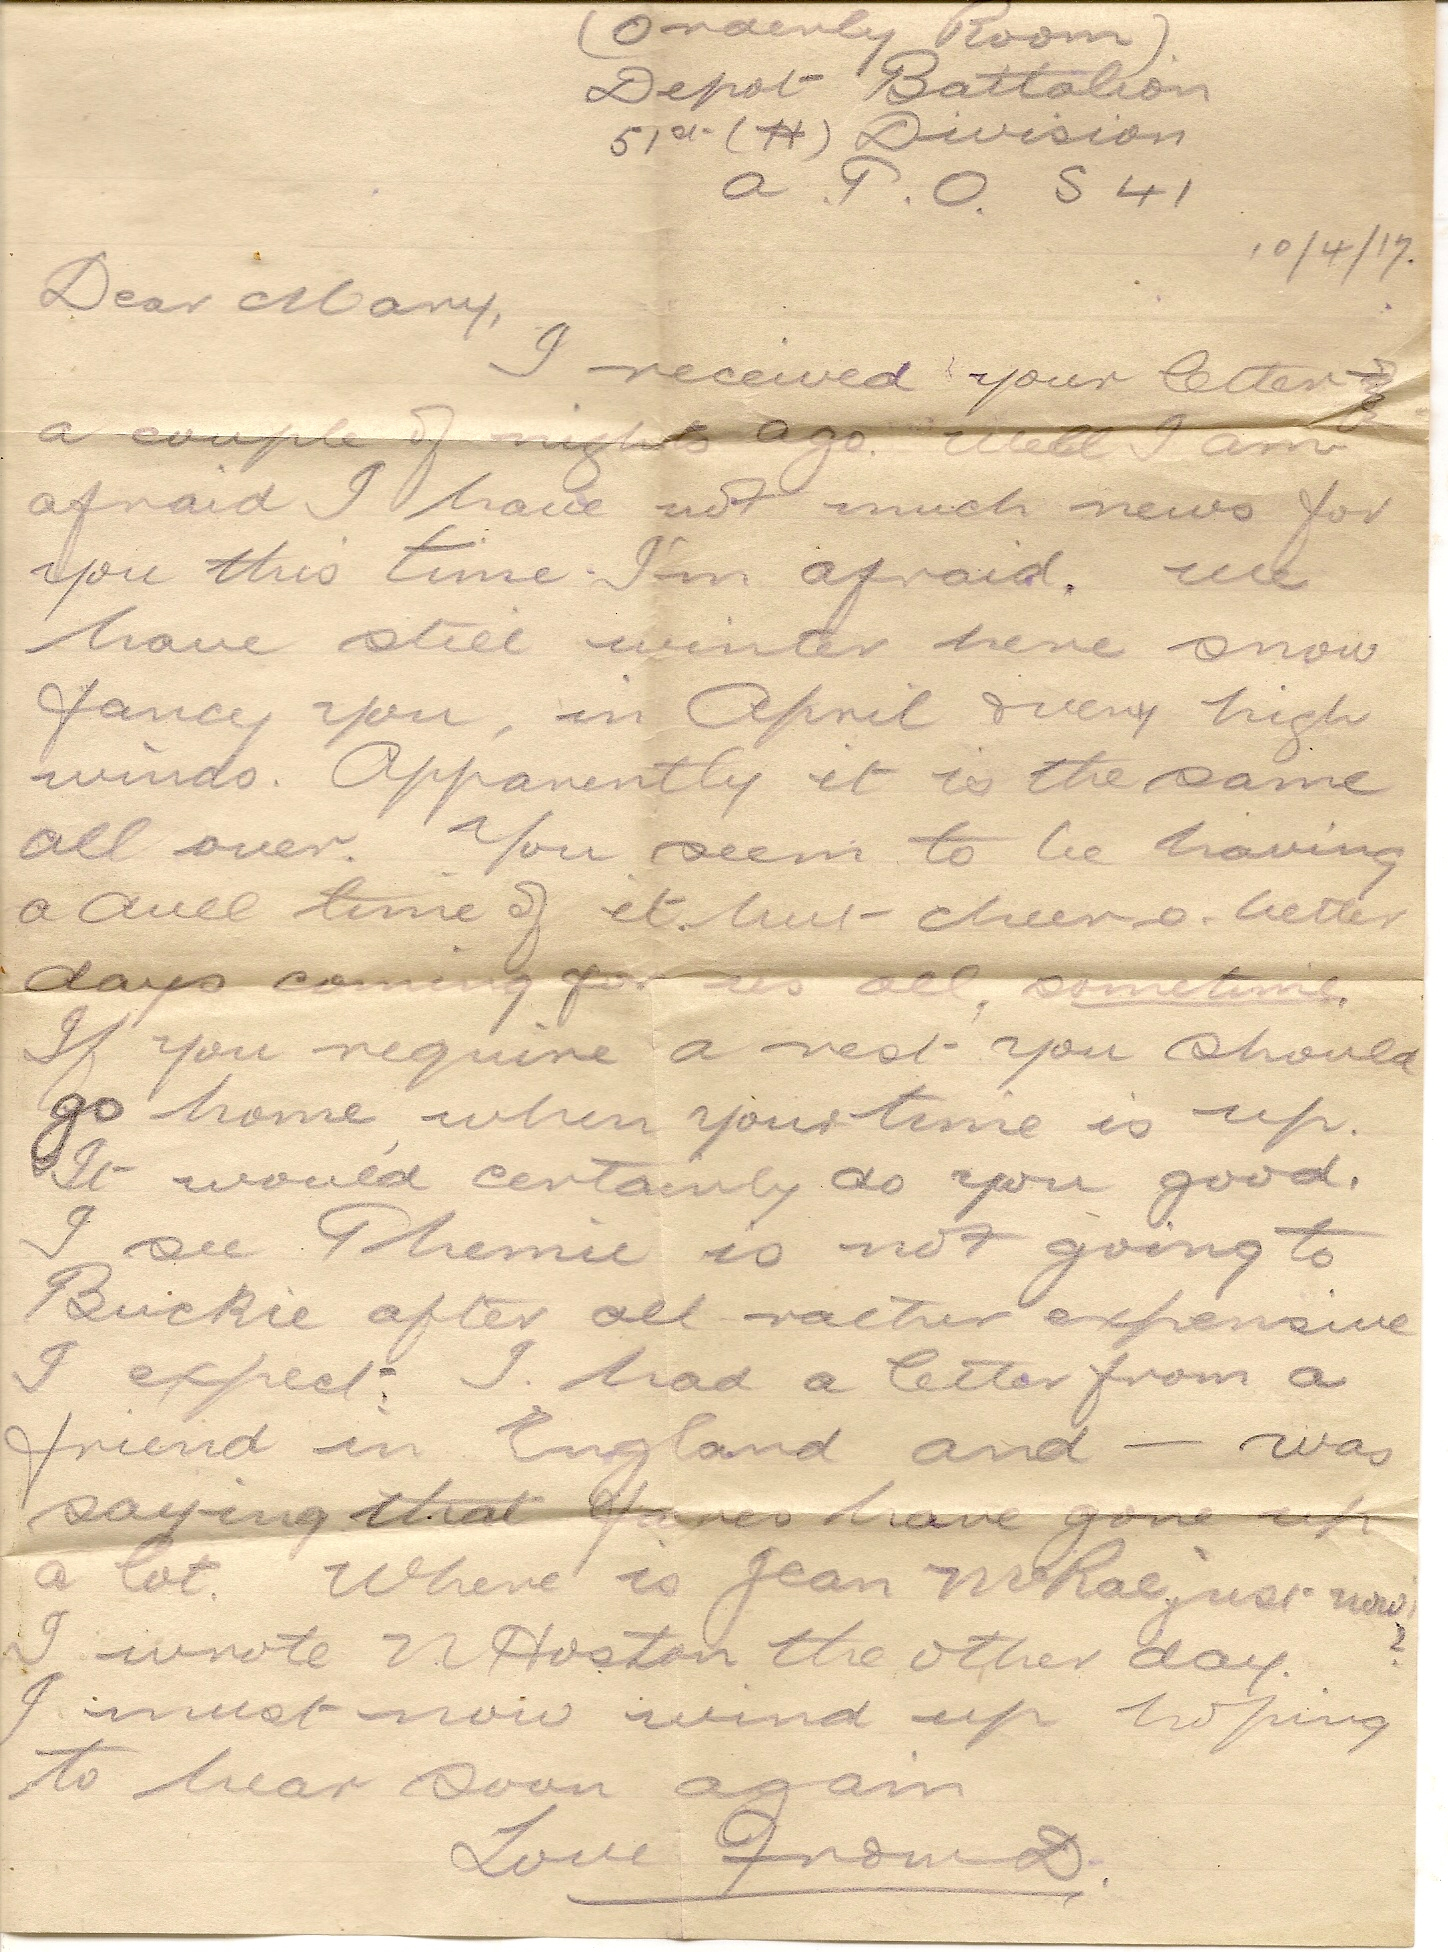 (Orderly Room)
Depot Battalion
51st (H) Division
A.P.O. S 41
10/4/17.
Dear Mary,
I received your letter
a couple of nights ago. Well I am
afraid I have not much news for
you this time I'm afraid. We
have still winter here snow
fancy you, in April & very high
winds. Apparently it is the same
all over. You seem to be having
a dull time of it. but cheer o. better
days coming for us all, sometime.
If you require a rest you should
go home when your time is up.
It would certainly do you good.
I see Phemie is not going to
Buckie after all rather expensive
I expect. I had a letter from a
friend in England and — was
saying that fares have gone up
a lot. Where is Jean McRae just now?
I wrote N Hoston the other day.
I must now wind up hoping
to hear soon again
Love From D.